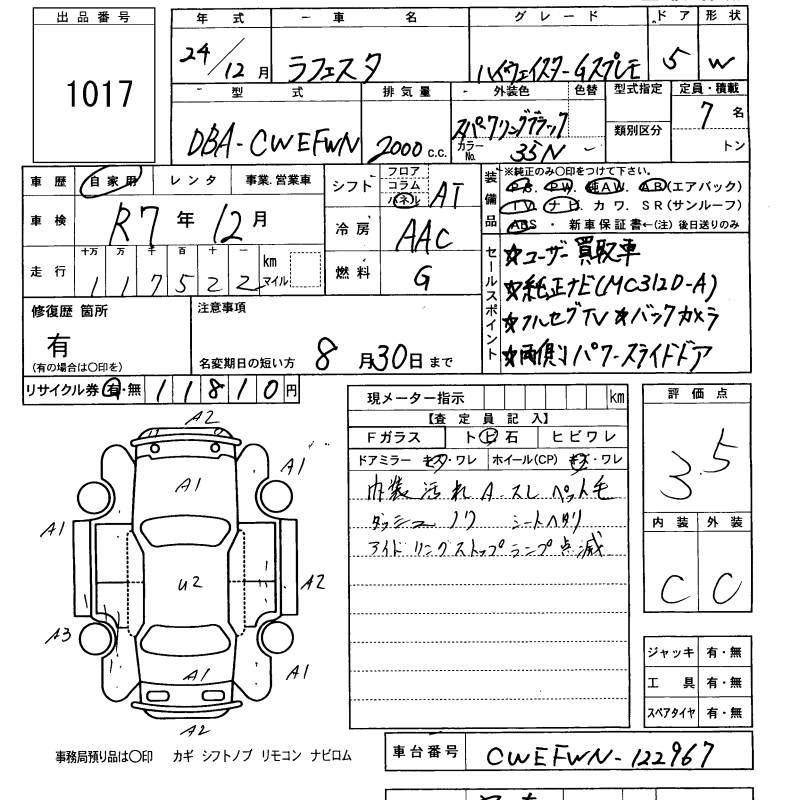 出品番号
1017
年式 車名 グレード ドア 形状
24/12月 ラフェスタ ハイウェイスターGスプレモ 5 W
型式 排気量 外装色 色替 型式指定 定員・積載
DBA-CWEFWN 2000c.c. スパークリングブラック 7名
カラーNo. 35N 類別区分 トン
車歴 自家用 レンタ 事業.営業車
車検 R7年12月
走行 十万 万 千 百 十 一 km マイル
117522
シフト フロア コラム パネル AT
冷房 AAC
燃料 G
装備品
※純正のみ〇印をつけて下さい。
P.S. P.W. 純AW. AB(エアバック)
TV. ナビ. カワ. SR(サンルーフ)
ABS ・ 新車保証書←(注)後日送りのみ
セールスポイント
☆ユーザー買取車
☆純正ナビ(MC312D-A)
☆フルセグTV ☆バックカメラ
☆両側パワースライドドア
修復歴 箇所
有
(有の場合は〇印を)
注意事項
名変期日の短い方 8月30日まで
リサイクル券 有・無 11810円
現メーター指示 km
【査定員記入】
Fガラス トビ石 ヒビワレ
ドアミラー キズ・ワレ ホイール(CP) キズ・ワレ
内装汚れ A.スレ ペット毛
ダッシュ ノリ シートヘタリ
アイドリングストップランプ点滅
評価点
3.5
内装 外装
C C
ジャッキ 有・無
工具 有・無
スペアタイヤ 有・無
A2
A1
A1
A1
U2
A2
A3
A1
A1
A2
事務局預り品は〇印 カギ シフトノブ リモコン ナビロム
車台番号 CWEFWN-122967